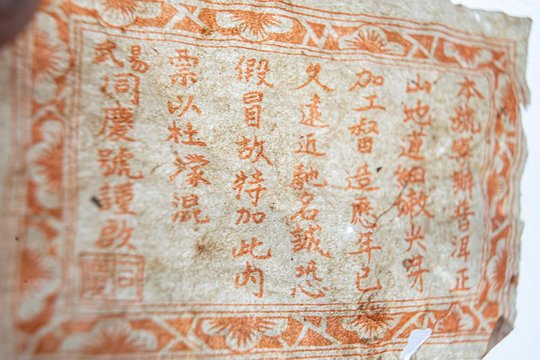 本號辦普洱正
山地道細嫩尖芽
加工督造應年已
久遠近馳名誠恐
假冒故特加此內
票以杜濛混
易武同慶號謹啟